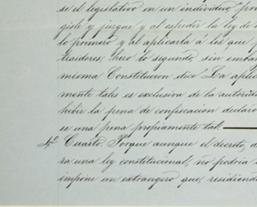 se el legislativo en un individuo pro
gisle y juzgue y al espedir la ley de
lo primero y al aplicarla á los que
traidores, hace lo segundo, sin emba
misma Constitucion dice La aplic
mente tales es exclusiva de la autorida
hibir la pena de confiscacion declaro
se una pena propiamente tal.
4ª Cuarto. Porque aunque el decreto, de
ra una ley constitucional, no podria
impone un extrangero que, residiendo